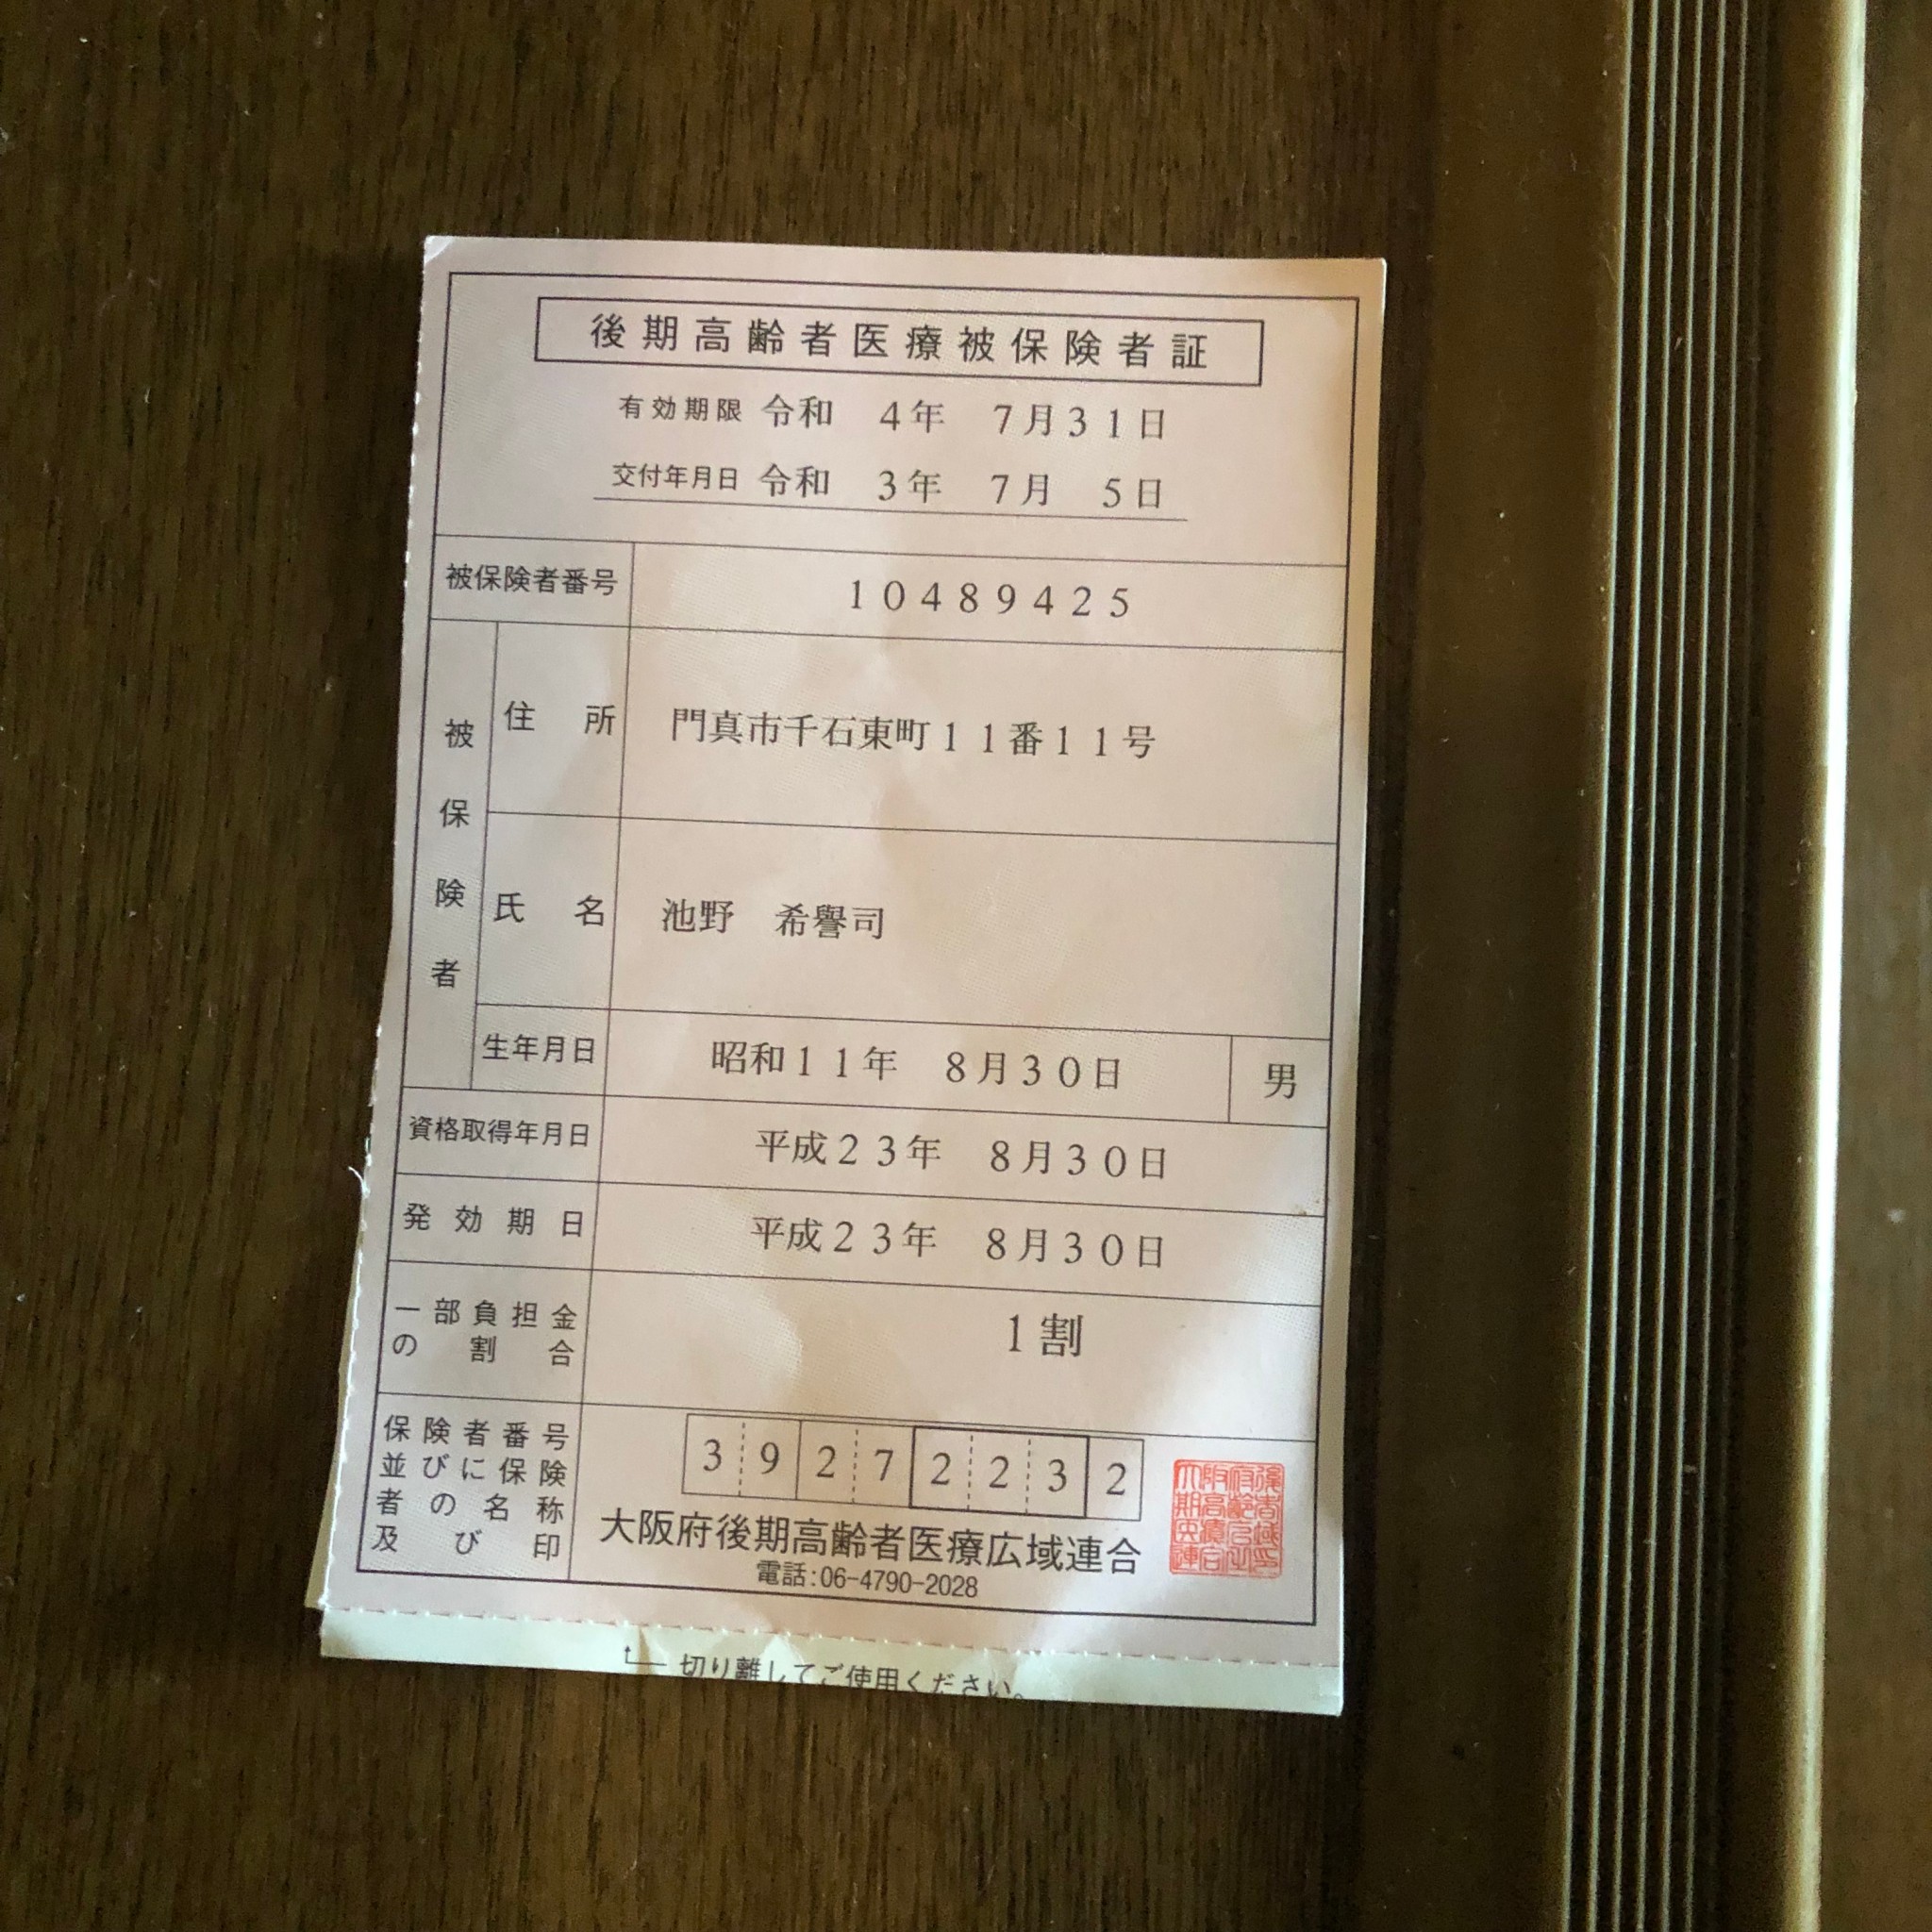 後期高齢者医療被保険者証
有効期限 令和 4年 7月31日
交付年月日 令和 3年 7月 5日
被保険者番号 10489425
被保険者
住所 門真市千石東町11番11号
氏名 池野 希譽司
生年月日 昭和11年 8月30日 男
資格取得年月日 平成23年 8月30日
発効期日 平成23年 8月30日
一部負担金の割合 1割
保険者番号並びに保険者の名称及び印
39272232
大阪府後期高齢者医療広域連合
電話:06-4790-2028
切り離してご使用ください。